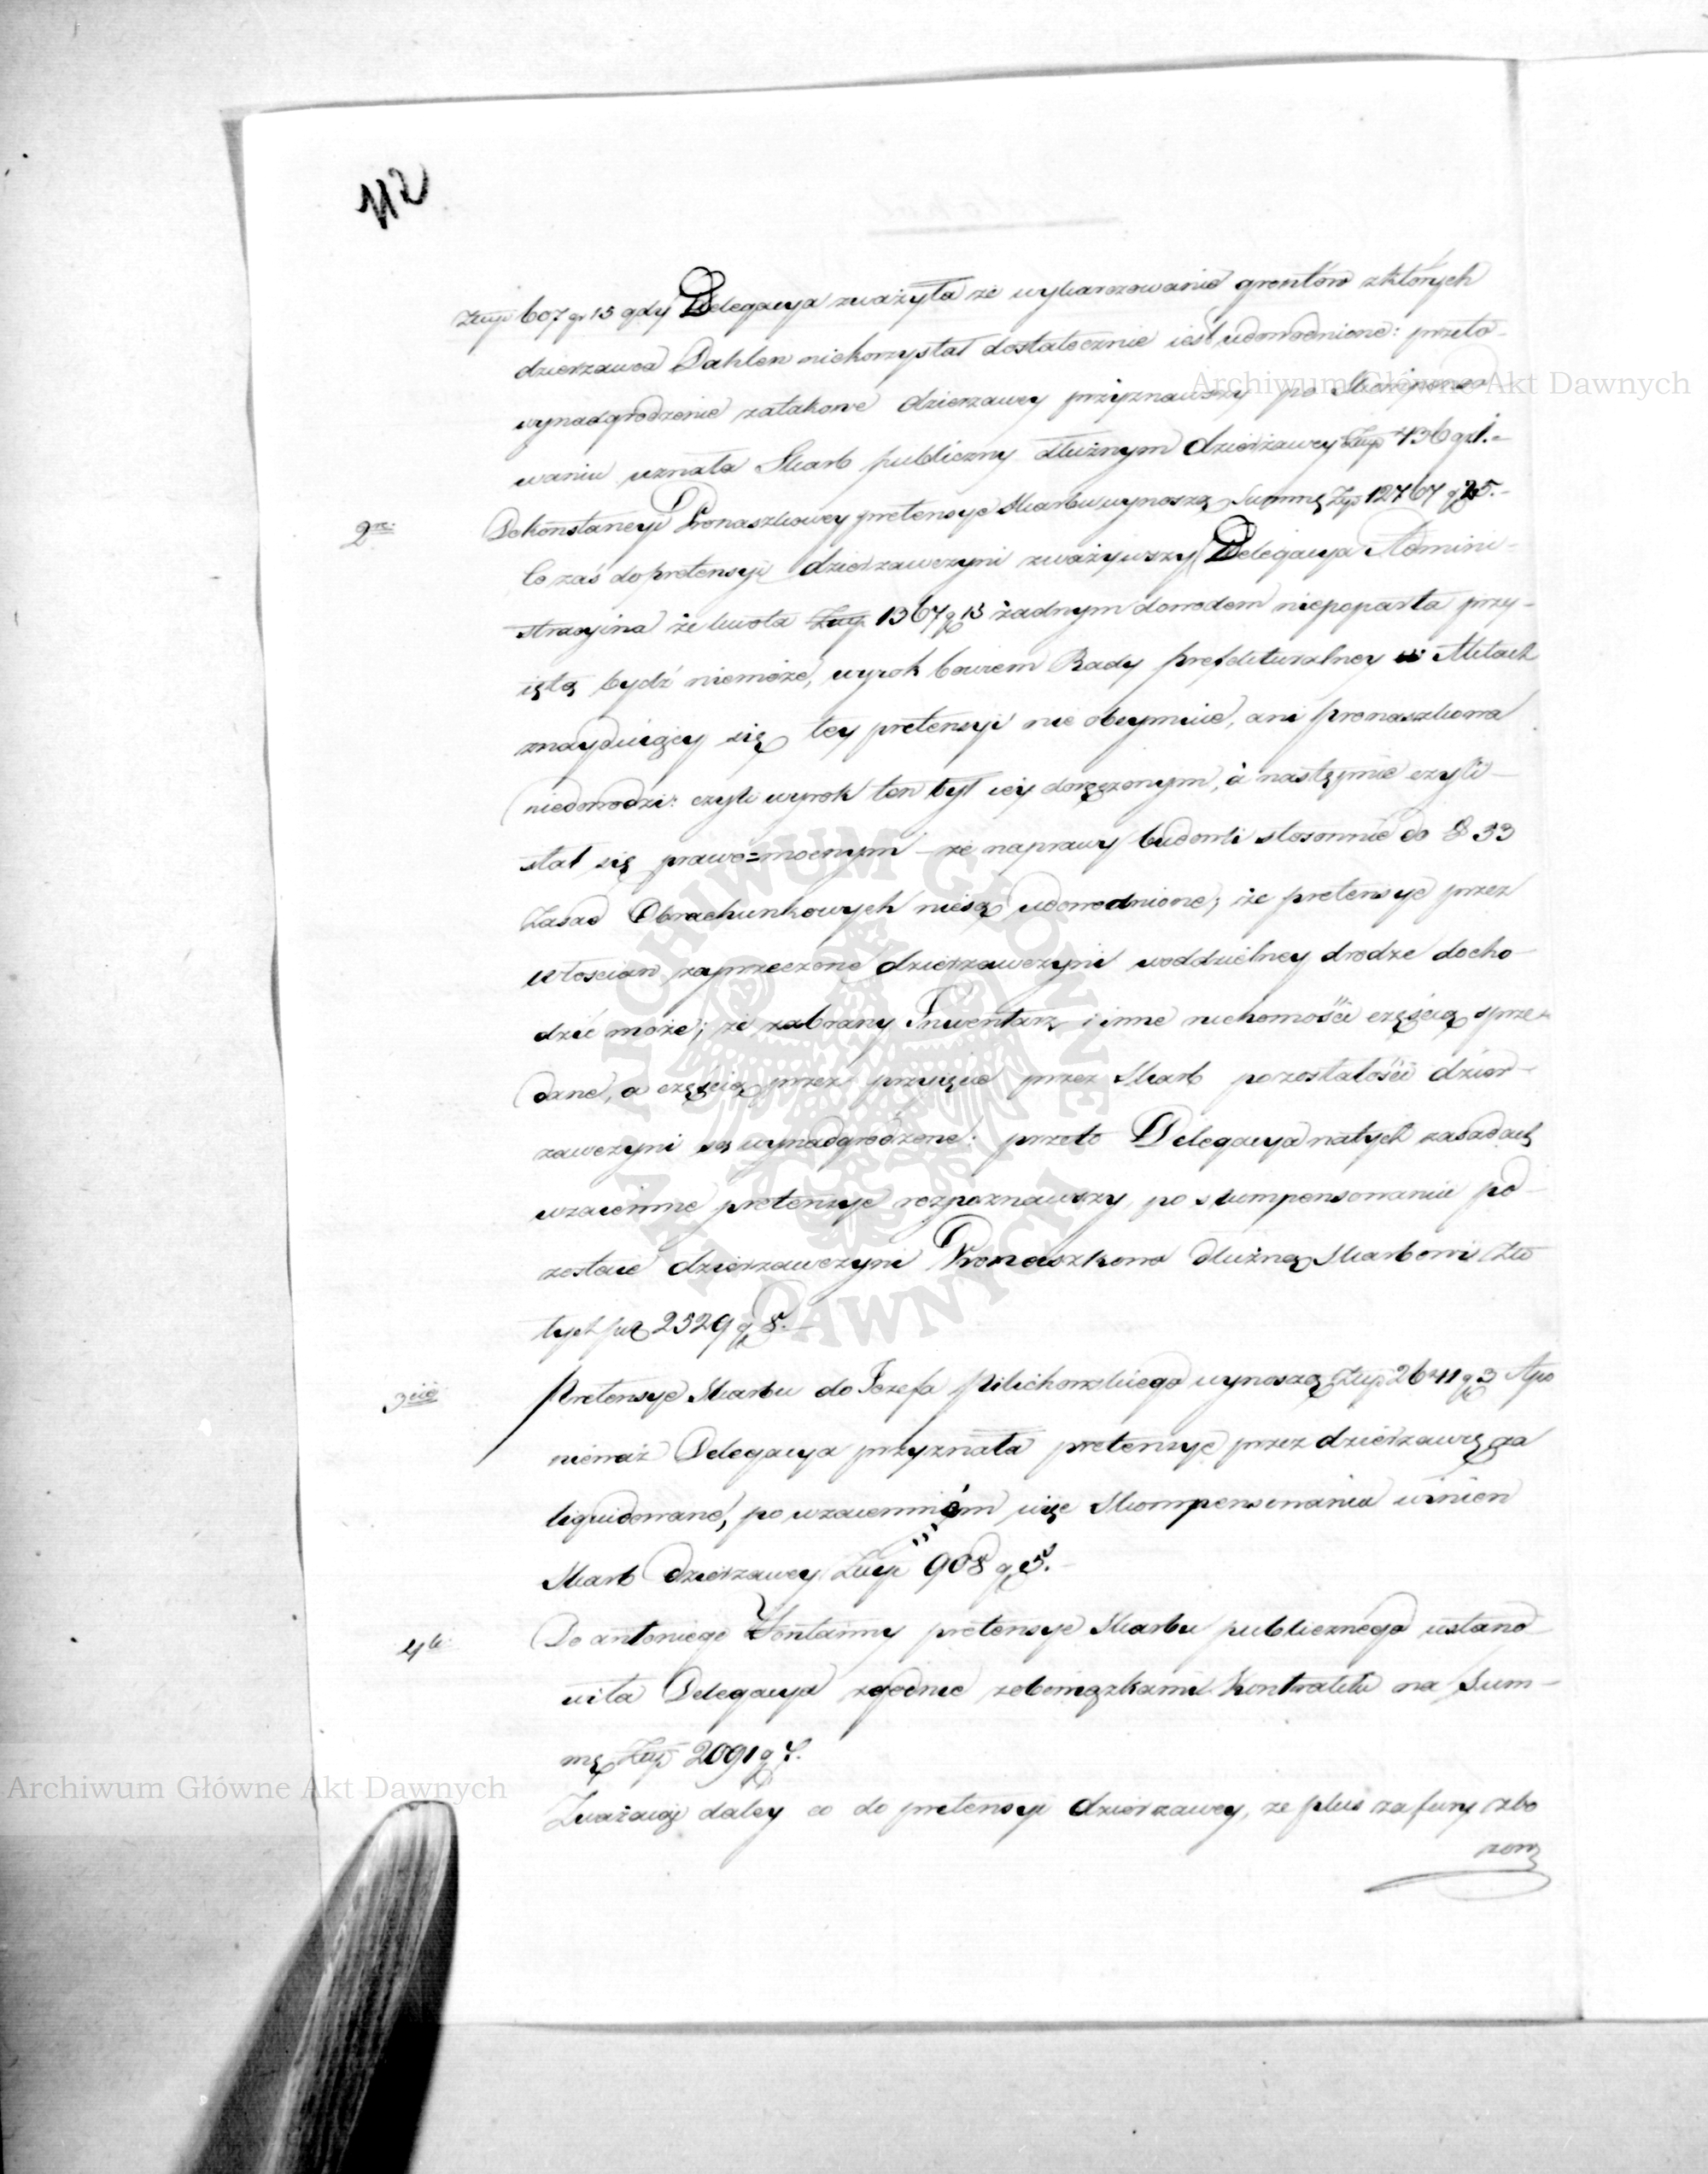 112
Złtp 607 gr 15 gdy Delegacya zważyła że wykarczowanie gruntów z których
dzierzawca Dahlen niekorzystał dostatecznie iest udowodnione: przeto
wynadgrodzenie zatakowe dzierzawcy przyznawszy po Skompenso-
waniu uznała Skarb publiczny dłużnym dzierzawcy Złtp 436 gr 1.-
2re Do Konstancyi Pronaszkowey pretensye Skarbu wynoszą Summę Złp 12767 gr 25.-
Co zaś do pretensyi dzierzawczyni zważywszy Delegacya Admini-
stracyina że kwota Złtp 1367 gr 13 żadnym dowodem niepoparta przy-
iętą bydź niemoże, wyrok bowiem Rady prefekturalney w Aktach
znayduiącey się tey pretensyi nie obeymuie, ani Pronaszkowa
niedowodzi: czyli wyrok ten był iey doręczonym, a następnie czyli
stał się prawo=mocnym - że naprawy budowli stosownie do § 33
Zasad Obrachunkowych niesą udowodnione; że pretensye przez
włoscian zaprzeczone dzierzawczyni woddzielney drodze docho-
dzić może; że zabrany Inwentarz i inne ruchomości częścią sprze-
dane, a częścią przez przyięcie przez Skarb pozostałości dzier-
zawczyni są wynadgrodzone: przeto Delegacya natych zasadach
wzaiemne pretensye rozpoznawszy, po skompensowaniu po-
zostaie dzierzawczyni Pronaszkowa dłużną Skarbowi Zło
tych pol 2529 gr 8.-
3cie Pretensye Skarbu do Jozefa Pilichowskiego wynoszą Złtp 2641 gr 3 A po
nieważ Delegacya przyznała pretensye przez dzierzawcę za
liquidowane, po wzaiemném więc Skompensowaniu winien
Skarb dzierzawcy Złtp 908 gr 5.-
4te Do antoniego Fontanny pretensye Skarbu publicznego ustano-
wiła Delegacya zgodnie zobowiązkami Kontraktu na Sum-
mę Złtp 2091 gr 7.
Zważaiąc daley co do pretensyi dzierzawcy, że plus za fury zbo
żow
Archiwum Główne Akt Dawnych
Archiwum Główne Akt Dawnych
ARCHIWUM GŁÓWNE AKT DAWNYCH